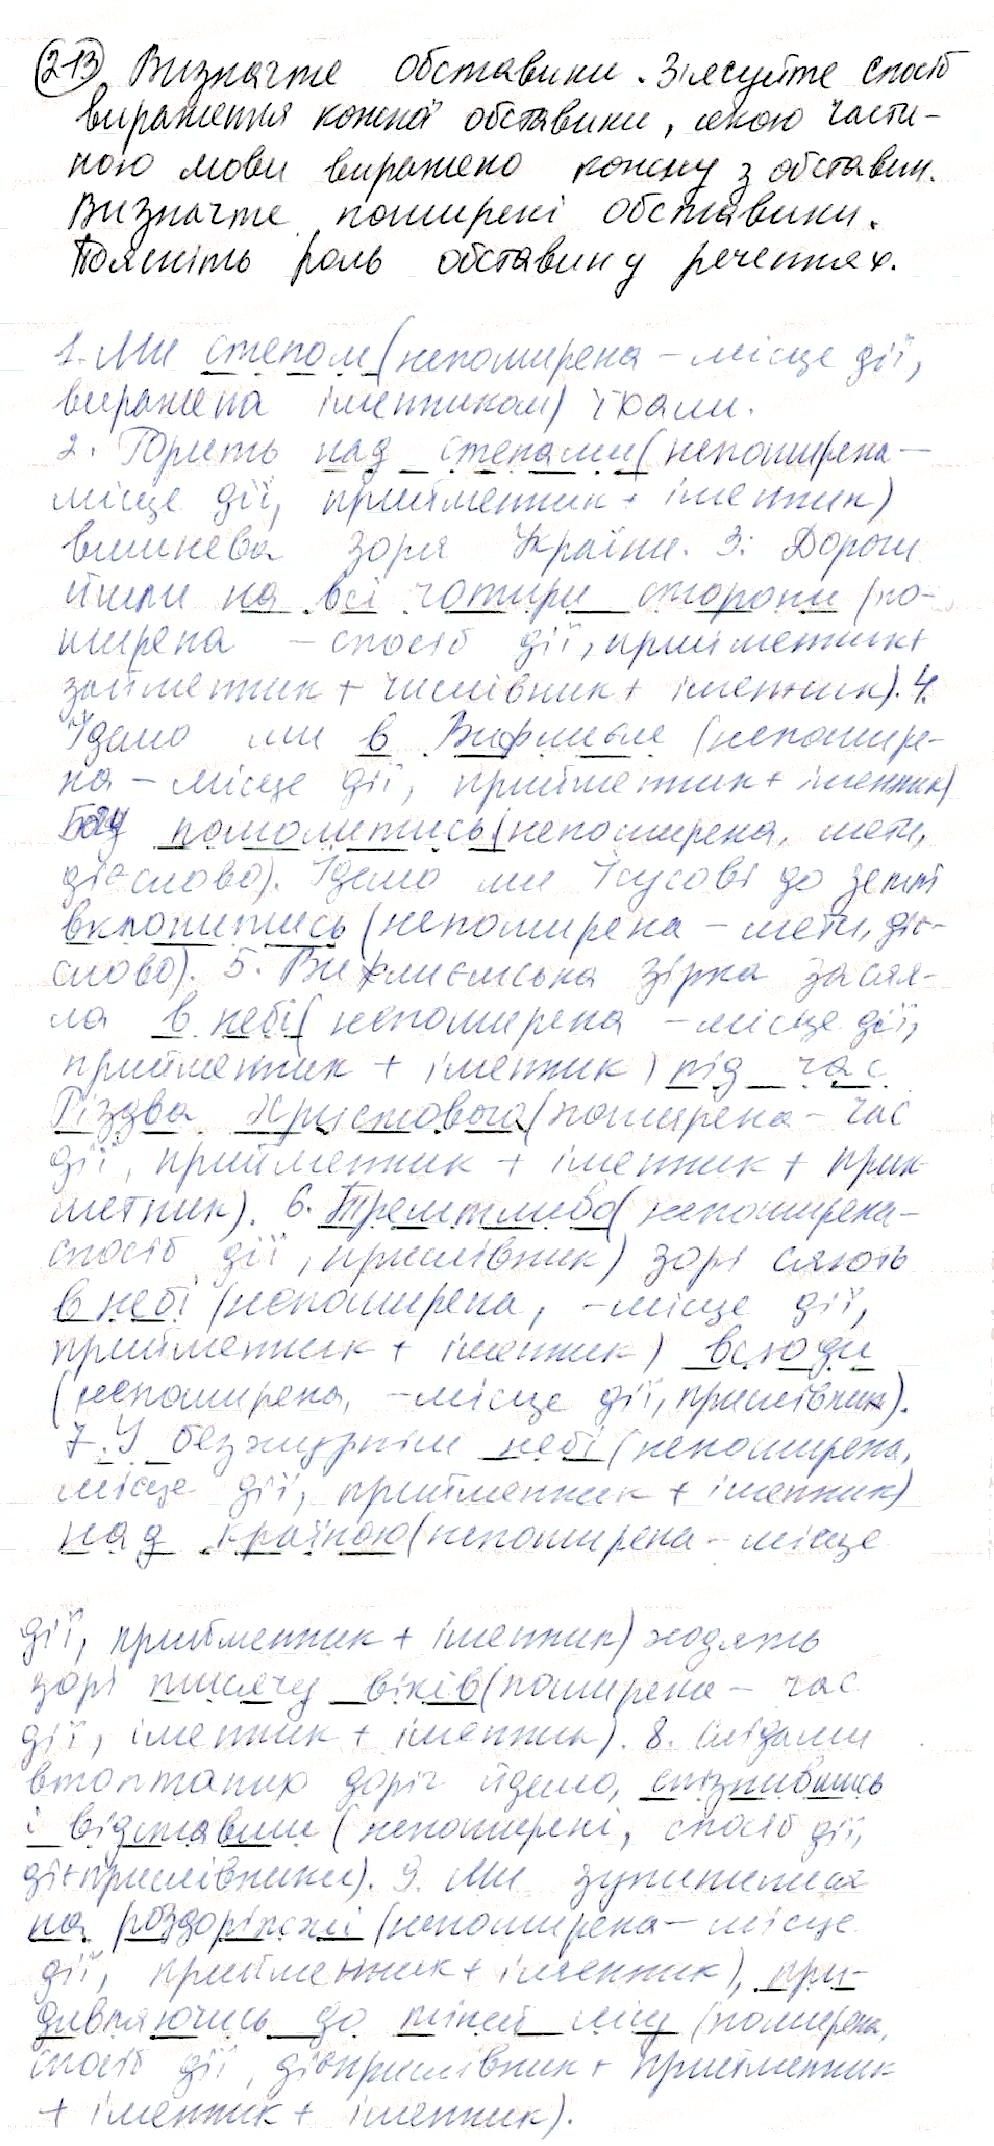 213 Визначте обставини. З'ясуйте спосіб
вираження кожної обставини, якою части-
ною мови виражено кожну з обставин.
Визначте поширені обставини.
Поясніть роль обставин у реченнях.
1. Ми степом (непоширена – місце дії,
виражена іменником) їхали.
2. Горить над степами (непоширена –
місце дії, прийменник + іменник)
вишнева зоря України. 3. Дороги
йшли на всі чотири сторони (по-
ширена – спосіб дії, прийменник +
займенник + числівник + іменник). 4.
Їдемо ми в Вифлиєм (непошире-
на – місце дії, прийменник + іменник)
помолитись (непоширена, мети,
дієслово). Ідемо ми Ісусові до землі
вклонитись (непоширена – мети, діє-
слово). 5. Вифлиємська зірка засяя-
ла в небі (непоширена – місце дії,
прийменник + іменник) під час
Різдва Христового (поширена – час
дії, прийменник + іменник + прик-
метник). 6. Тремтливо (непоширена –
спосіб дії, прислівник) зорі сяють
в небі (непоширена, – місце дії,
прийменник + іменник) всюди
(непоширена, – місце дії, прислівник).
7. У безжурнім небі (непоширена,
місце дії, прийменник + іменник)
над країною (непоширена – місце
дії, прийменник + іменник) ходять
зорі тисячу віків (поширена – час
дії, іменник + іменник). 8. Слідами
втоптаних доріг йдемо, спізнившись
і відставши (непоширені, спосіб дії,
дієприслівники). 9. Ми зупинилися
на роздоріжжі (непоширена – місце
дії, прийменник + іменник), при-
дивляючись до тіней лісу (поширена,
спосіб дії, дієприслівник + прийменник
+ іменник + іменник).